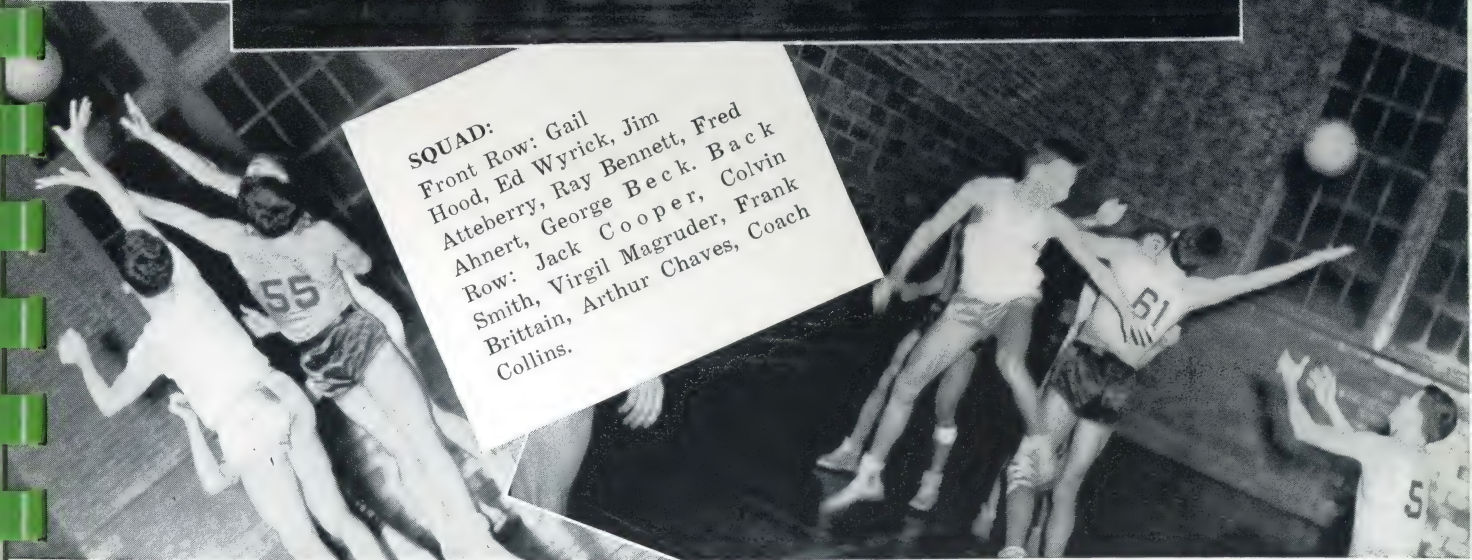 SQUAD:
Front Row: Gail
Hood, Ed Wyrick, Jim
Atteberry, Ray Bennett, Fred
Ahnert, George Beck. Back
Row: Jack Cooper, Colvin
Smith, Virgil Magruder, Frank
Brittain, Arthur Chaves, Coach
Collins.
55
61
5